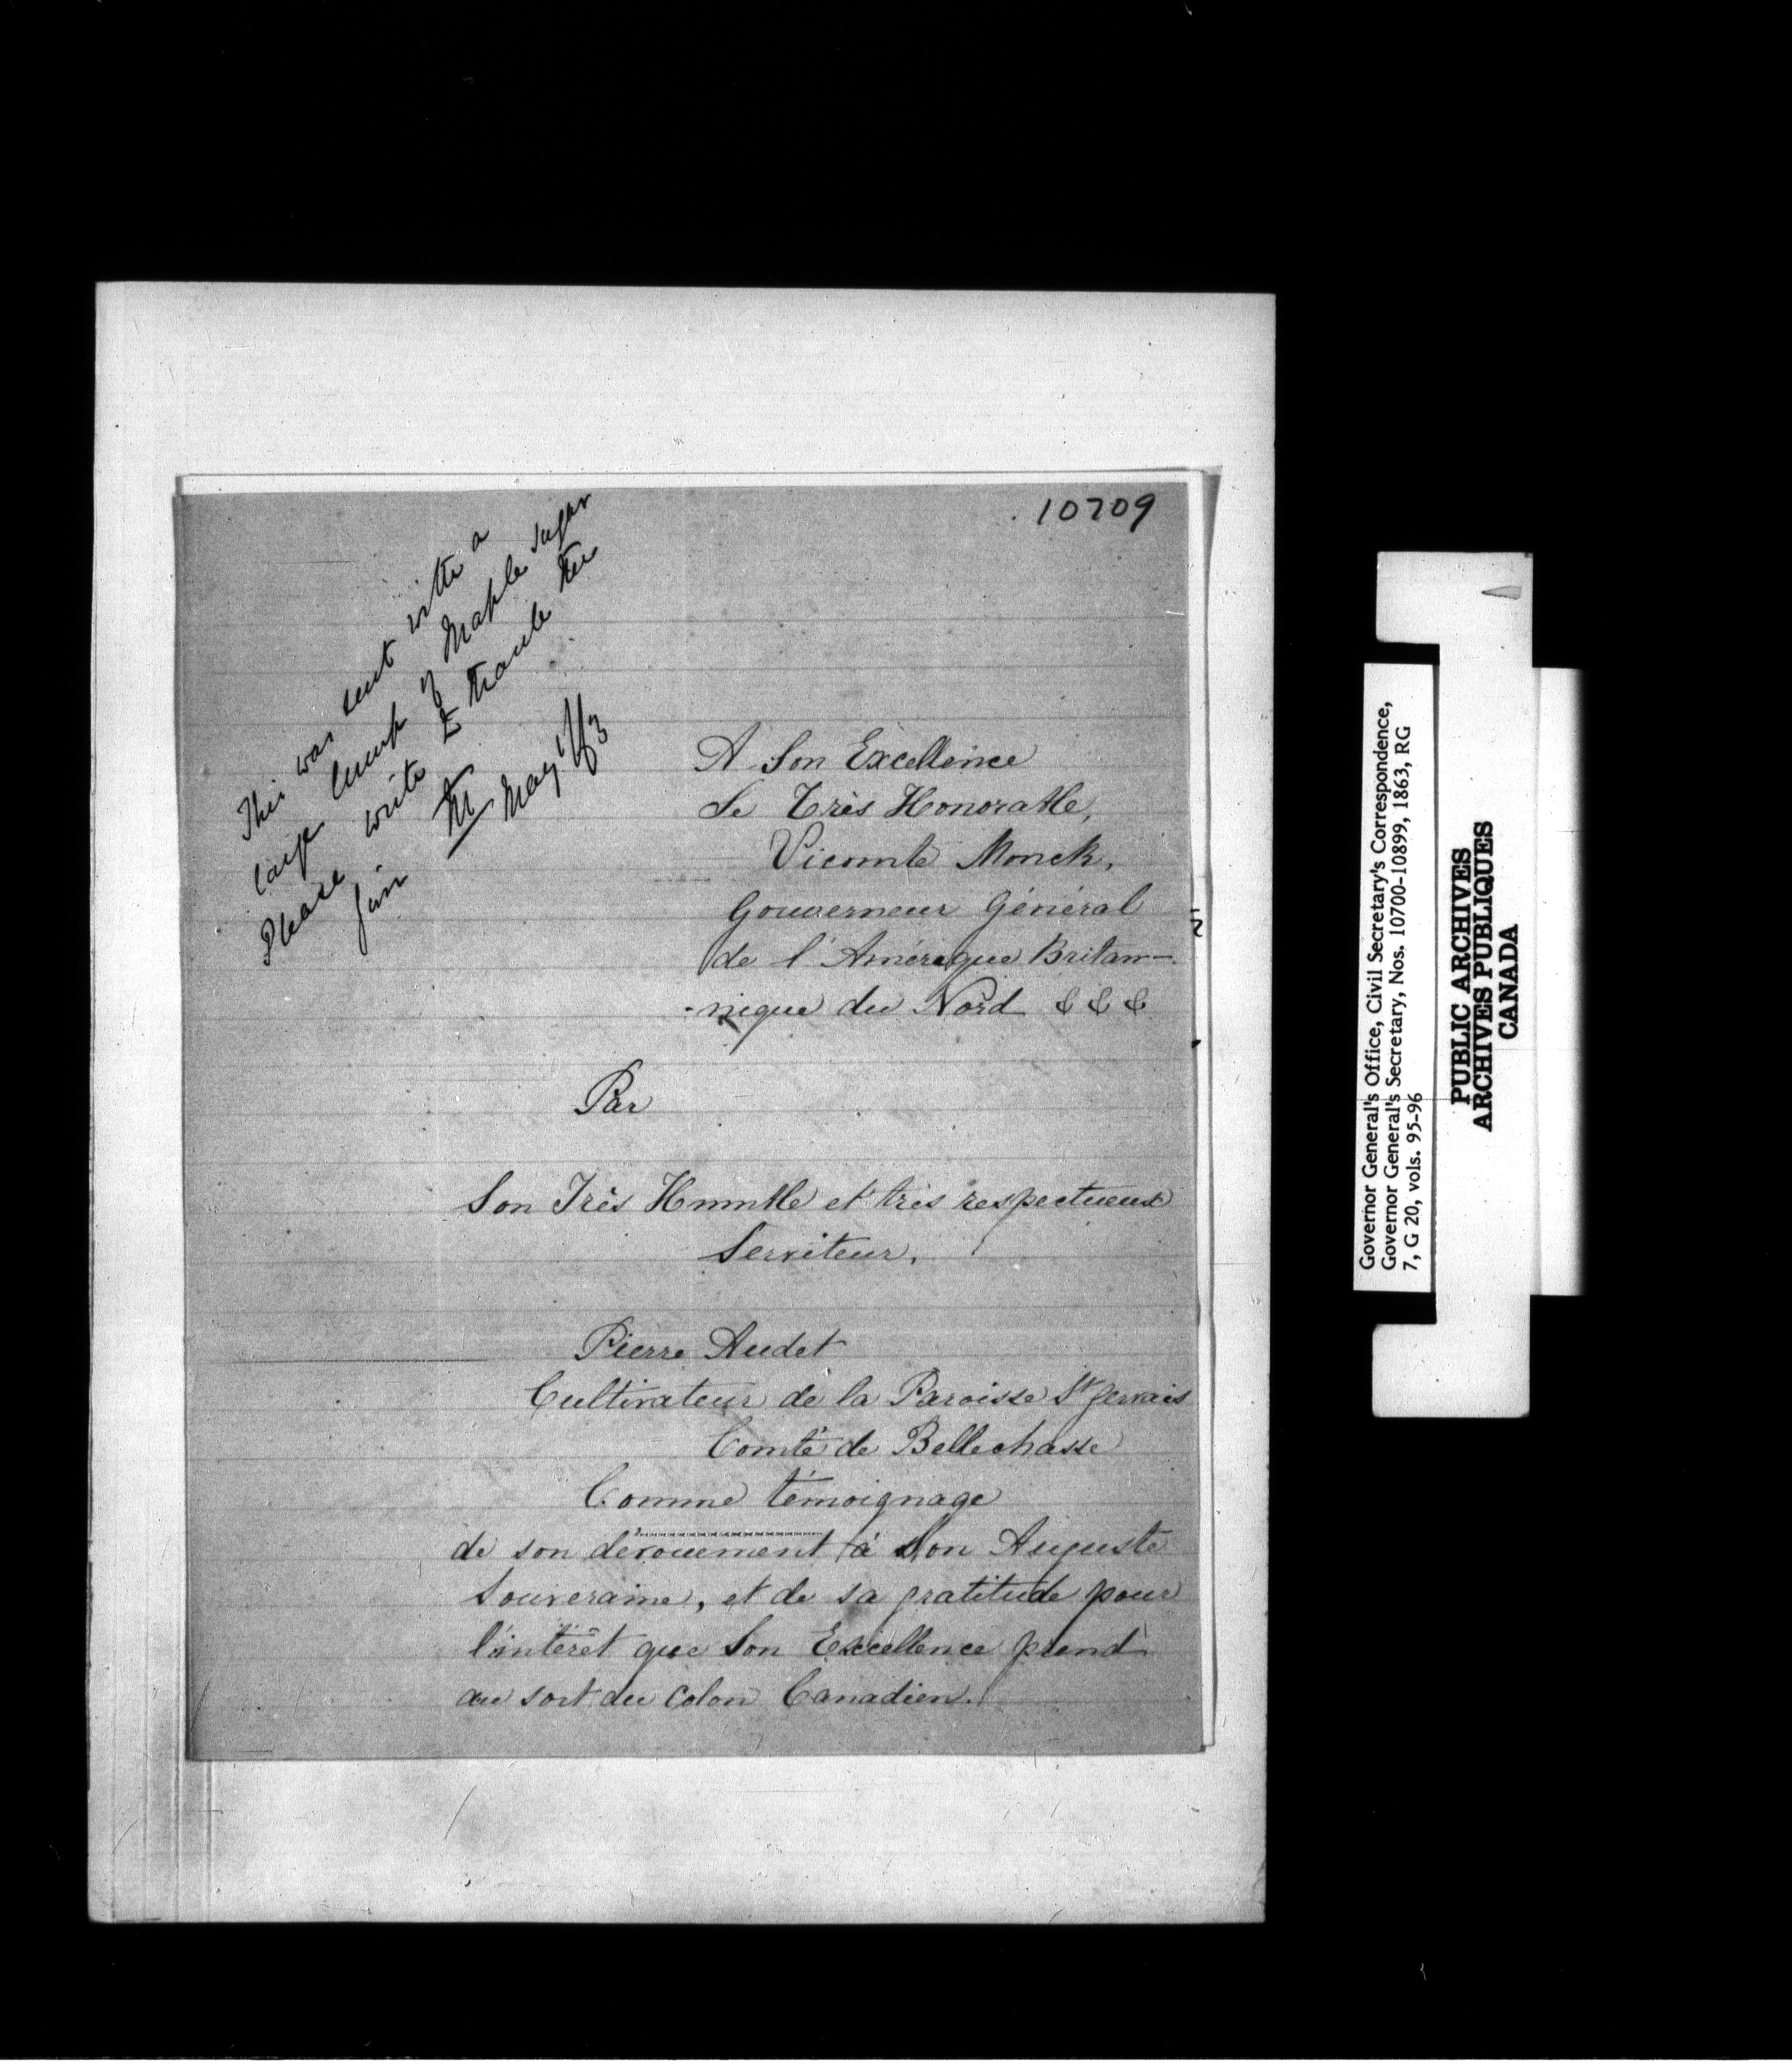 10709
This was sent with a
large lump of Maple sugar
Please write to thank the
giver
M
May 1/63
A Son Excellence
Le Très Honorable,
Vicomte Monck,
Gouverneur Général
de l'Amérique Britan-
-nique du Nord & & &
Par
Son Très Humble et très respectueux
Serviteur,
Pierre Audet
Cultivateur de la Paroisse St Gervais
Comté de Bellechasse
Comme témoignage
de son dévouement à Son Auguste
Souveraine, et de sa gratitude pour
l'intérêt que Son Excellence prend
au sort du Colon Canadien.
Governor General's Office, Civil Secretary's Correspondence,
Governor General's Secretary, Nos. 10700-10899, 1863, RG
7, G 20, vols. 95-96
PUBLIC ARCHIVES
ARCHIVES PUBLIQUES
CANADA